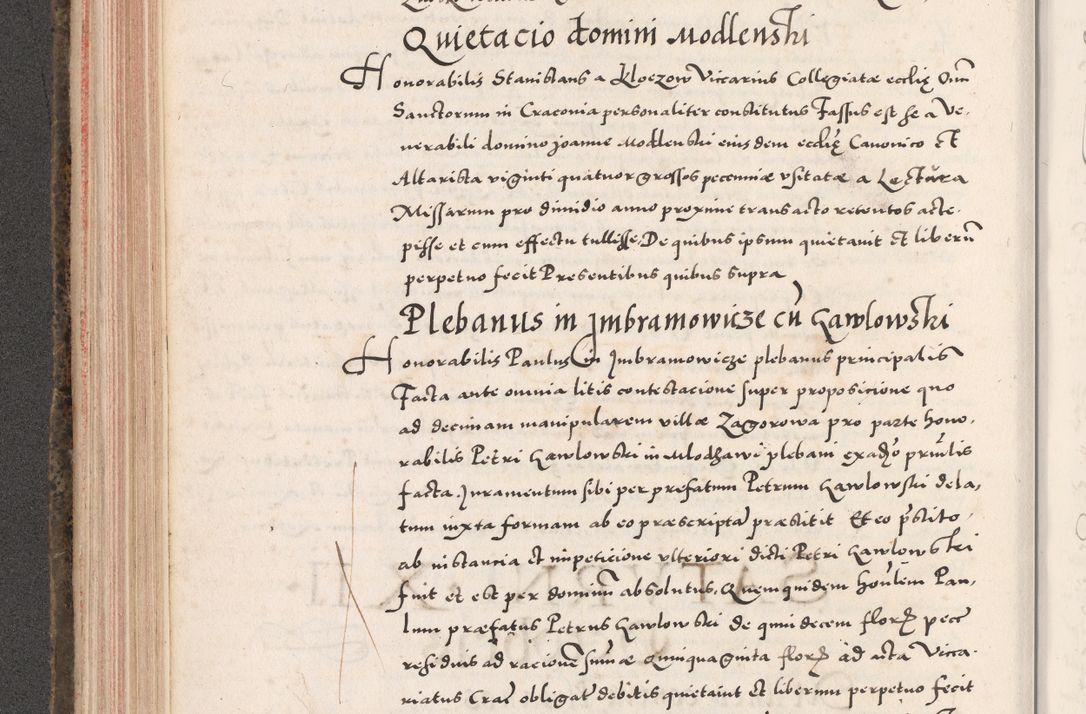 Quietacio domini Modlenski
Honorabilis Stanislaus a Kloczow Viccarius Collegiatæ ecclię Om̄
Sanctorum in Craconia personaliter constitutus Fassus est se a Ve-
nerabili domino Joanne Modlenski eiusdem ecclię Canonico et
Altarista viginti quatuor grossos pecuniæ vsitatæ a Lectura
Missarum pro dimidio anno proxime transacto retentos acce-
pisse et cum effectu tullisse. De quibus ipsum quietauit et liberū
perpetuo fecit Presentibus quibus supra
Plebanus in Jmbramowicze cū Gawlowski
Honorabilis Paulus in Jmbramowicze plebanus principalis
Facta ante omnia litis contestacione super proposicione quo
ad decimam manipularem villæ Zagorowa pro parte hono-
rabilis Petri Gawlowski in Mlodzawi plebani ex adỏ priulis
facta. Juramentum sibi per prefatum Petrum Gawlowski dela-
tum iuxta formam ab eo præscriptā præstitit Et eo p̄stito
ab instancia et impeticione vlteriori dicti Petri Gawlowski
fuit et est per dominū absolutus. Quemquidem hoūlem Pau-
lum præfatus Petrus Gawlowski de quindecem flor pecc
residuis ad racionē sumæ Quinquaginta flor ad acta Vicca-
riatus Craē obligat debitis quietauit et liberum perpetuo fecit